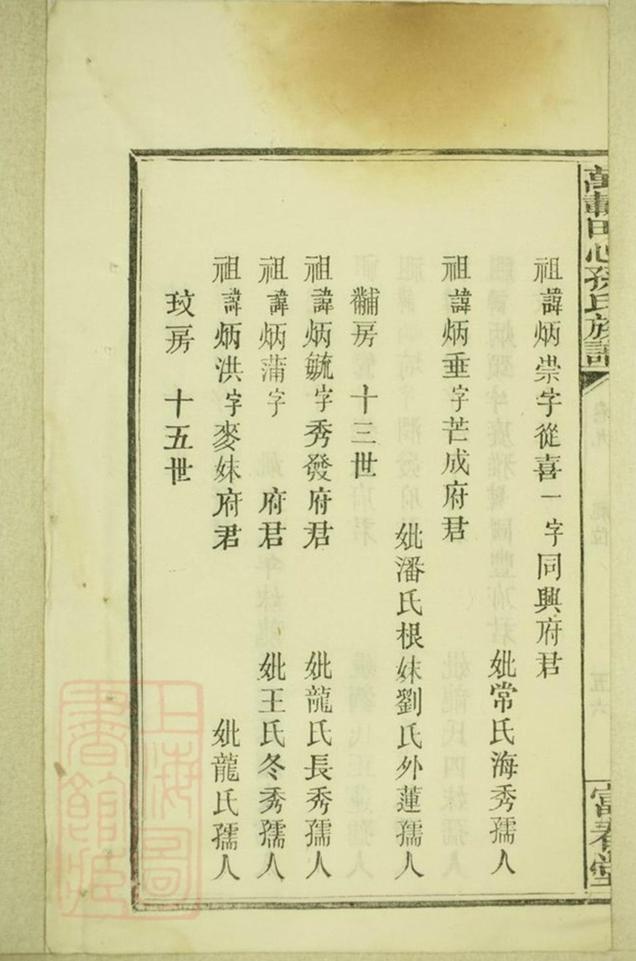 萬載田心孫氏族譜
富春堂
祖諱炳崇字從喜一字同興府君
妣常氏海秀孺人
祖諱炳垂字芒成府君
妣潘氏根妹劉氏外蓮孺人
黼房 十三世
祖諱炳毓字秀發府君 妣龍氏長秀孺人
祖諱炳蒲字 府君 妣王氏冬秀孺人
祖諱炳洪字麥妹府君 妣龍氏孺人
玟房 十五世
上海圖書館藏